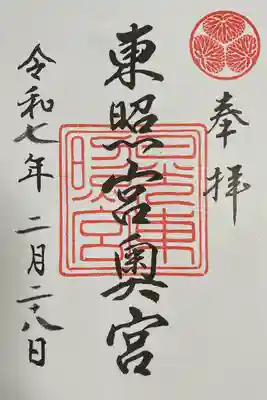 奉拝
東照宮奥宮
令和七年二月二十八日